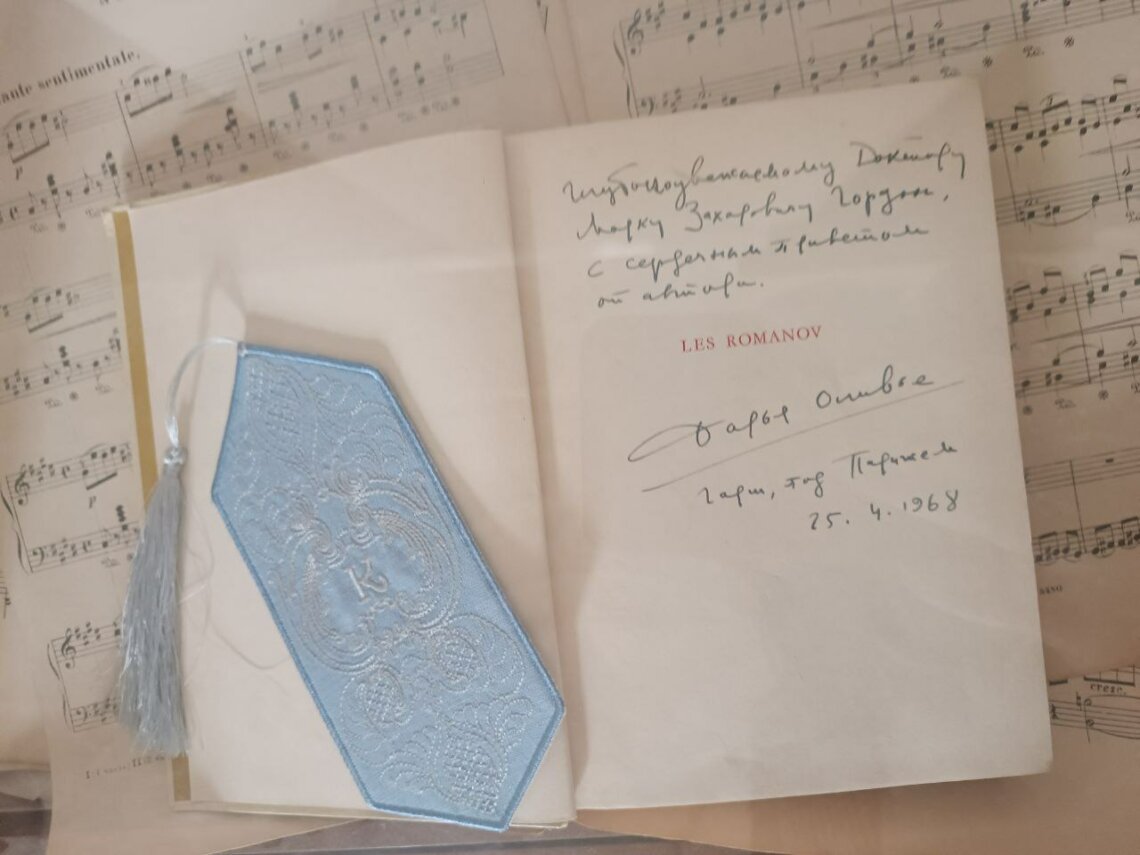 ante sentimentale.
Глубокоуважаемому Доктору
Марку Захаровичу Гордон,
с сердечным приветом
от автора.
LES ROMANOV
Дарья Оливье
Гарш, под Парижем
25. 4. 1968
K
cresc.